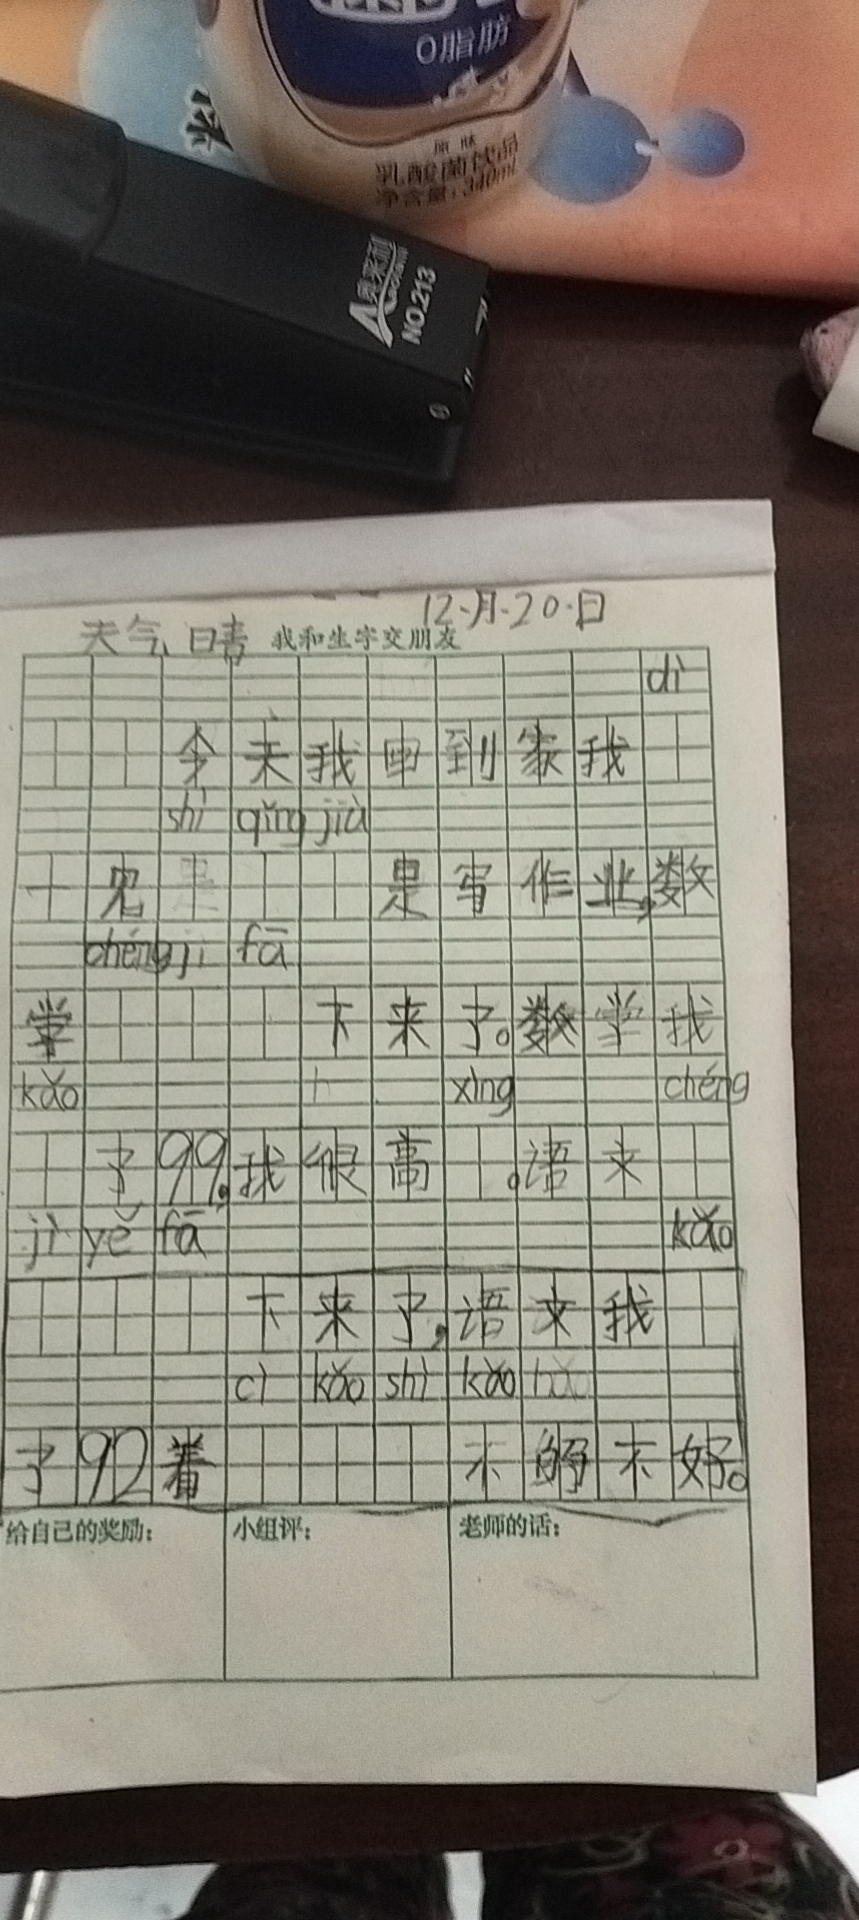 0脂肪
原味
乳酸菌饮品
净含量:340ml
奥来利
NO.213
12.月.20.日
天气 晴 我和生字交朋友
dì
今天我回到家我
shì qǐng jià
一 是写作业,数
chéng jì fā
学 下来了。数学我
kǎo xìng chéng
了99,我很高 。语文
jì yě fā kǎo
下来了,语文我
cì kǎo shì kǎo hǎo
了92着 不够不好。
给自己的奖励: 小组评: 老师的话: